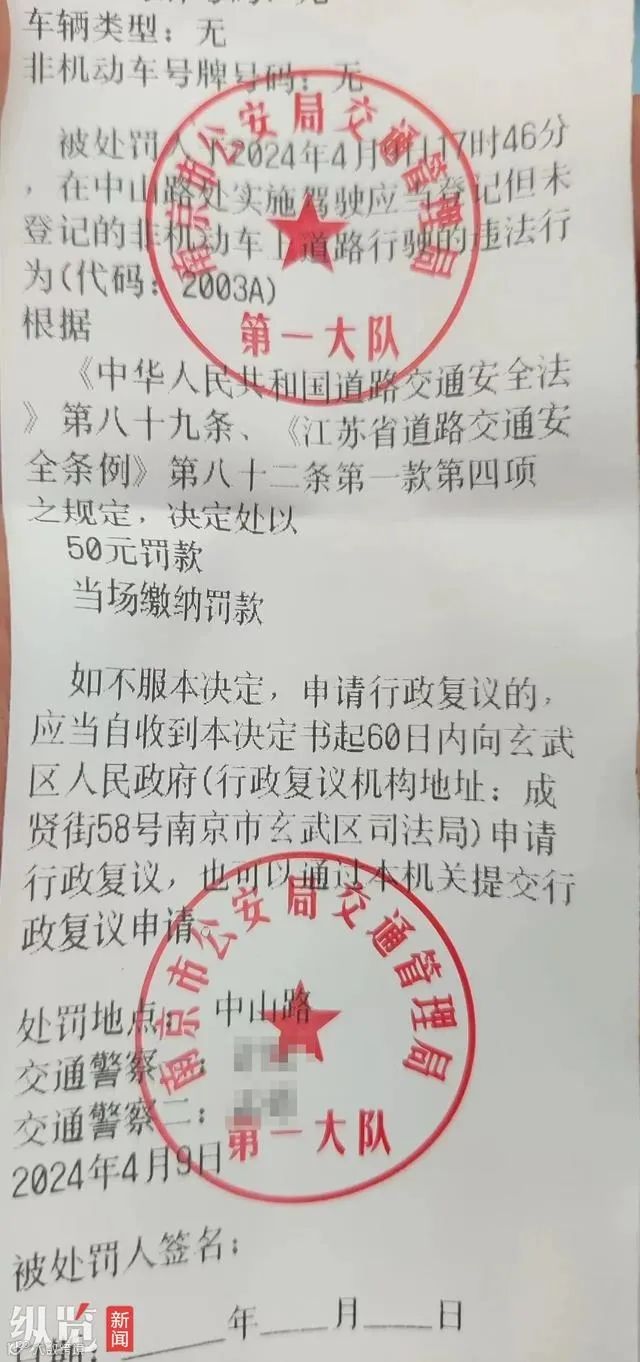 车辆类型：无
非机动车号牌号码：无
被处罚人于2024年4月9日17时46分
，在中山路处实施驾驶应当登记但未
登记的非机动车上道路行驶的违法行
为(代码：2003A)
根据
《中华人民共和国道路交通安全法
》第八十九条、《江苏省道路交通安
全条例》第八十二条第一款第四项
之规定，决定处以
50元罚款
当场缴纳罚款
如不服本决定，申请行政复议的，
应当自收到本决定书起60日内向玄武
区人民政府(行政复议机构地址：成
贤街58号南京市玄武区司法局)申请
行政复议，也可以通过本机关提交行
政复议申请。
处罚地点：中山路
交通警察一：
交通警察二：
2024年4月9日
被处罚人签名：
日期：____年____月____日
南京市公安局交通管理局
第一大队
南京市公安局交通管理局
第一大队
纵览
新闻